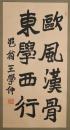 歐風漢骨
東學西行
王學仲